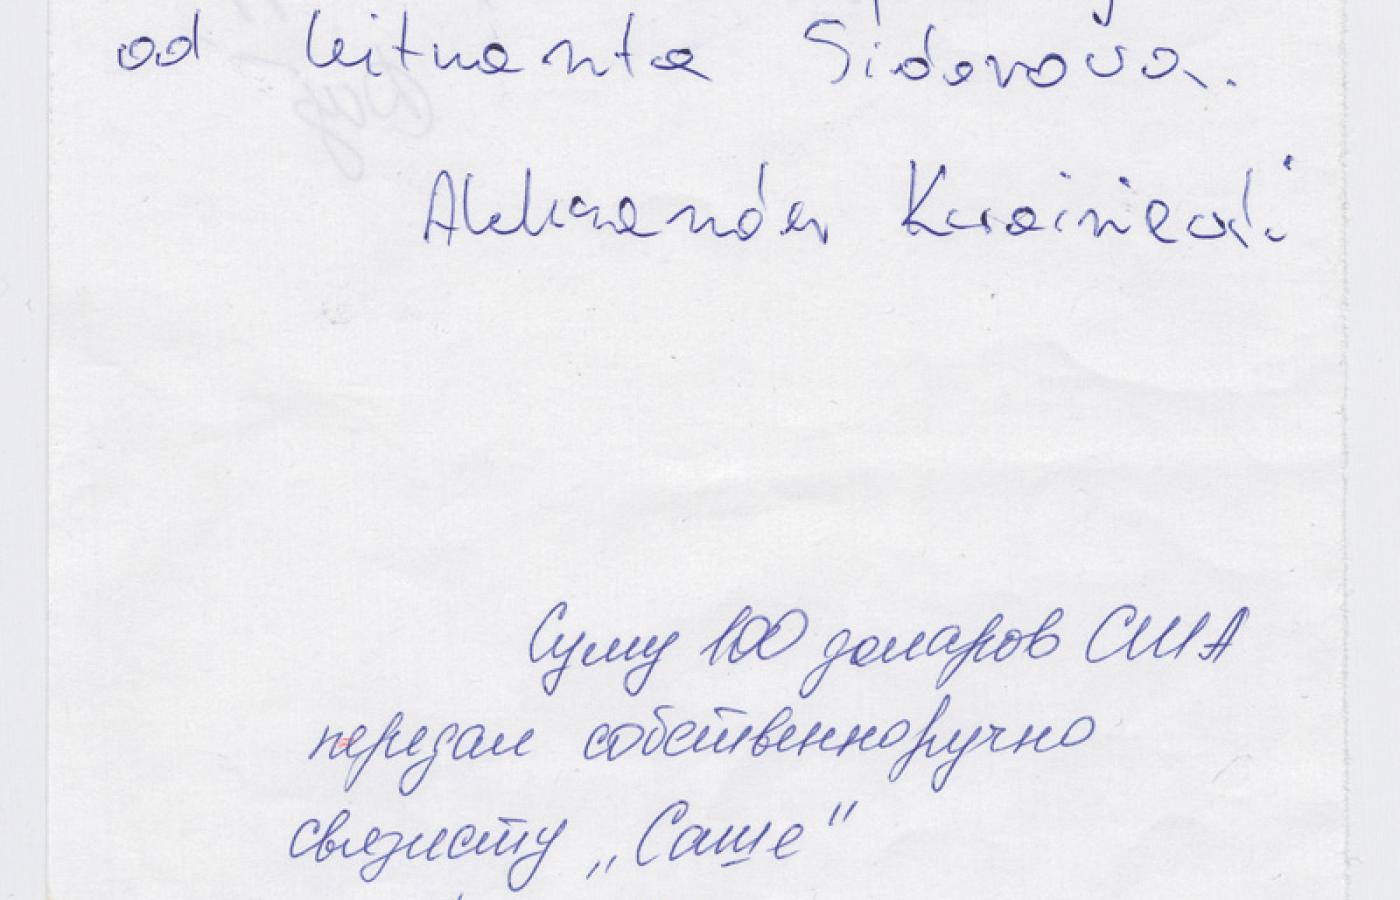 od leitnanta Sidorova.
Aleksander
Суму 100 доларов США
передал собственноручно
связисту „Саше"